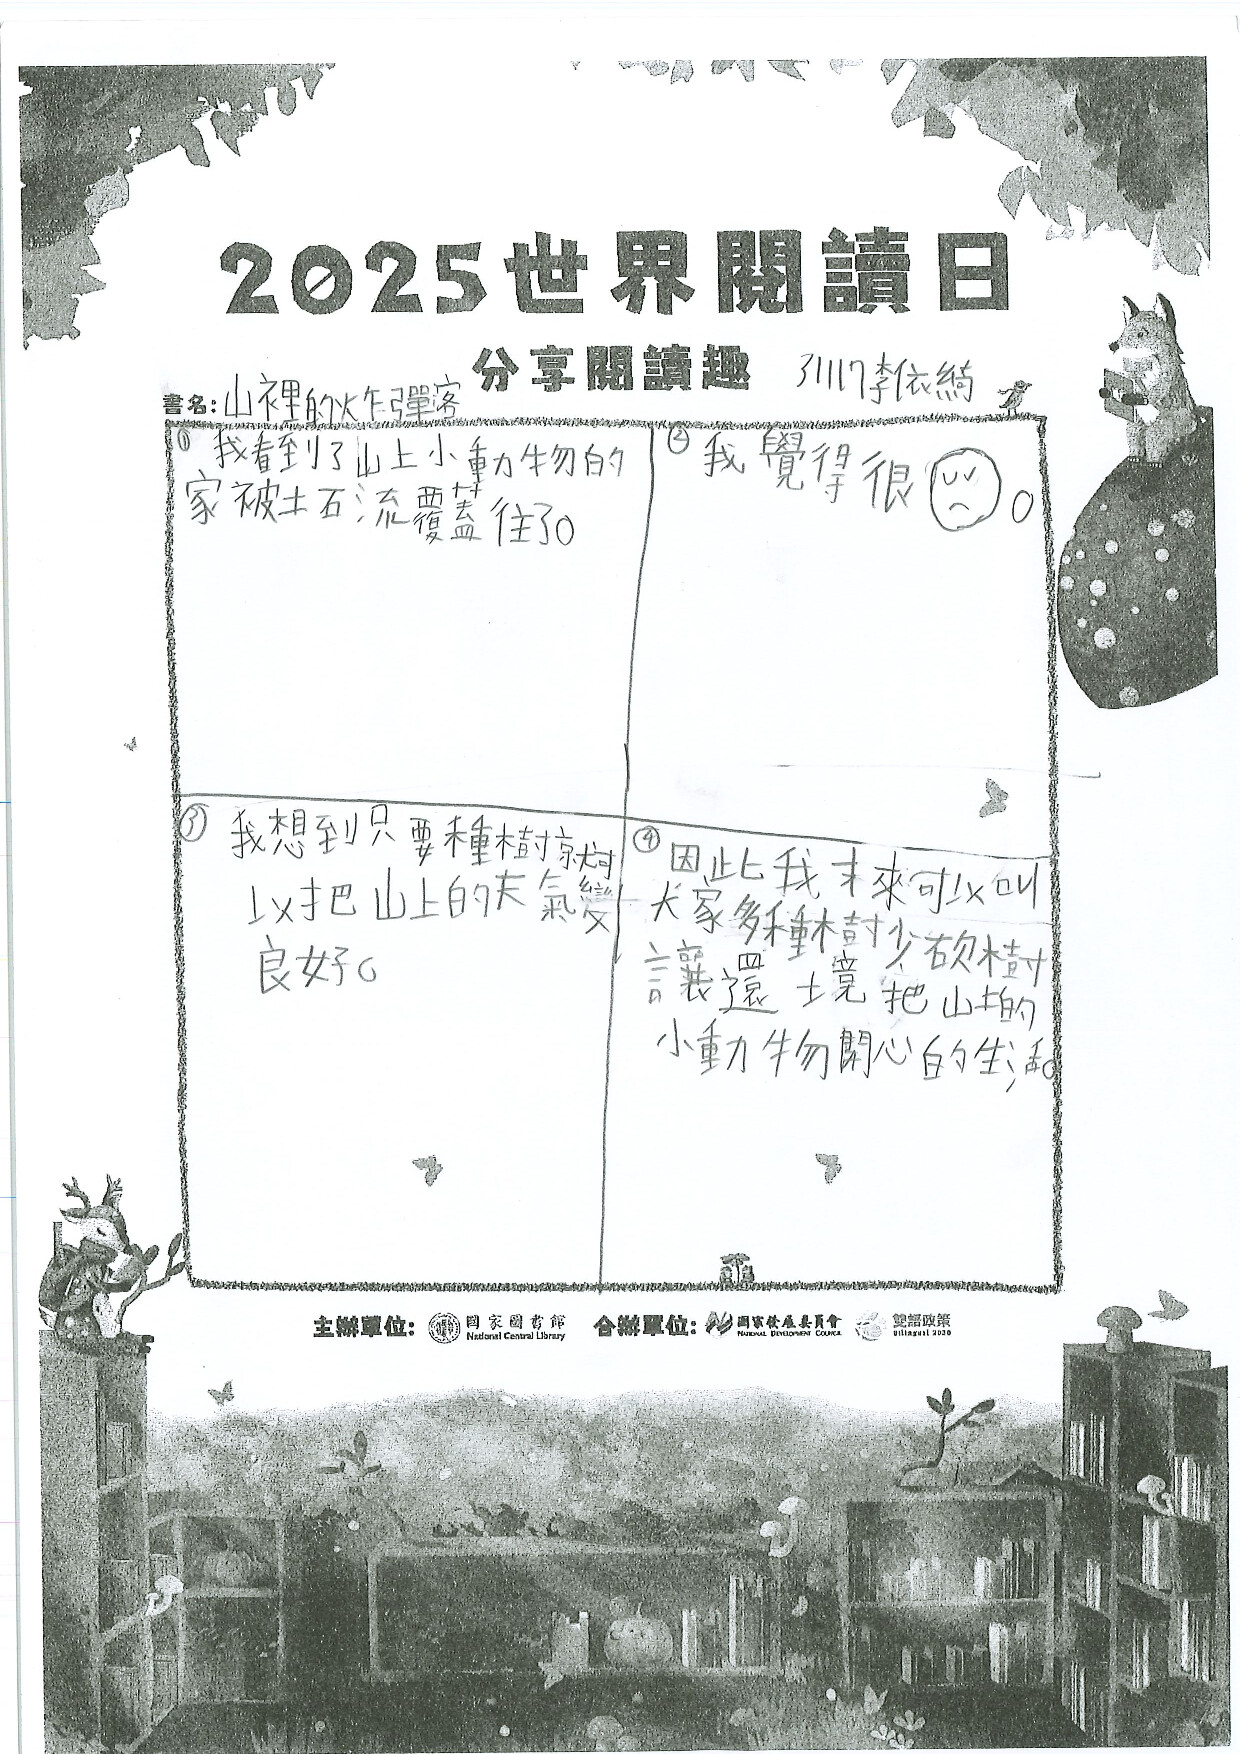 2025世界閱讀日
分享閱讀趣
31117李依綺
書名:山裡的火乍彈客
① 我看到了山上小動物的
家被土石流覆蓋住了。
② 我覺得很。
③ 我想到只要種樹就可
以把山上的天氣變
良好。
④ 因此我才來可以叫
大家多種樹少砍樹
讓還境把山上的
小動物開心的生活。
主辦單位: 國家圖書館 National Central Library 合辦單位: 國家發展委員會 NATIONAL DEVELOPMENT COUNCIL 雙語政策 Bilingual 2030